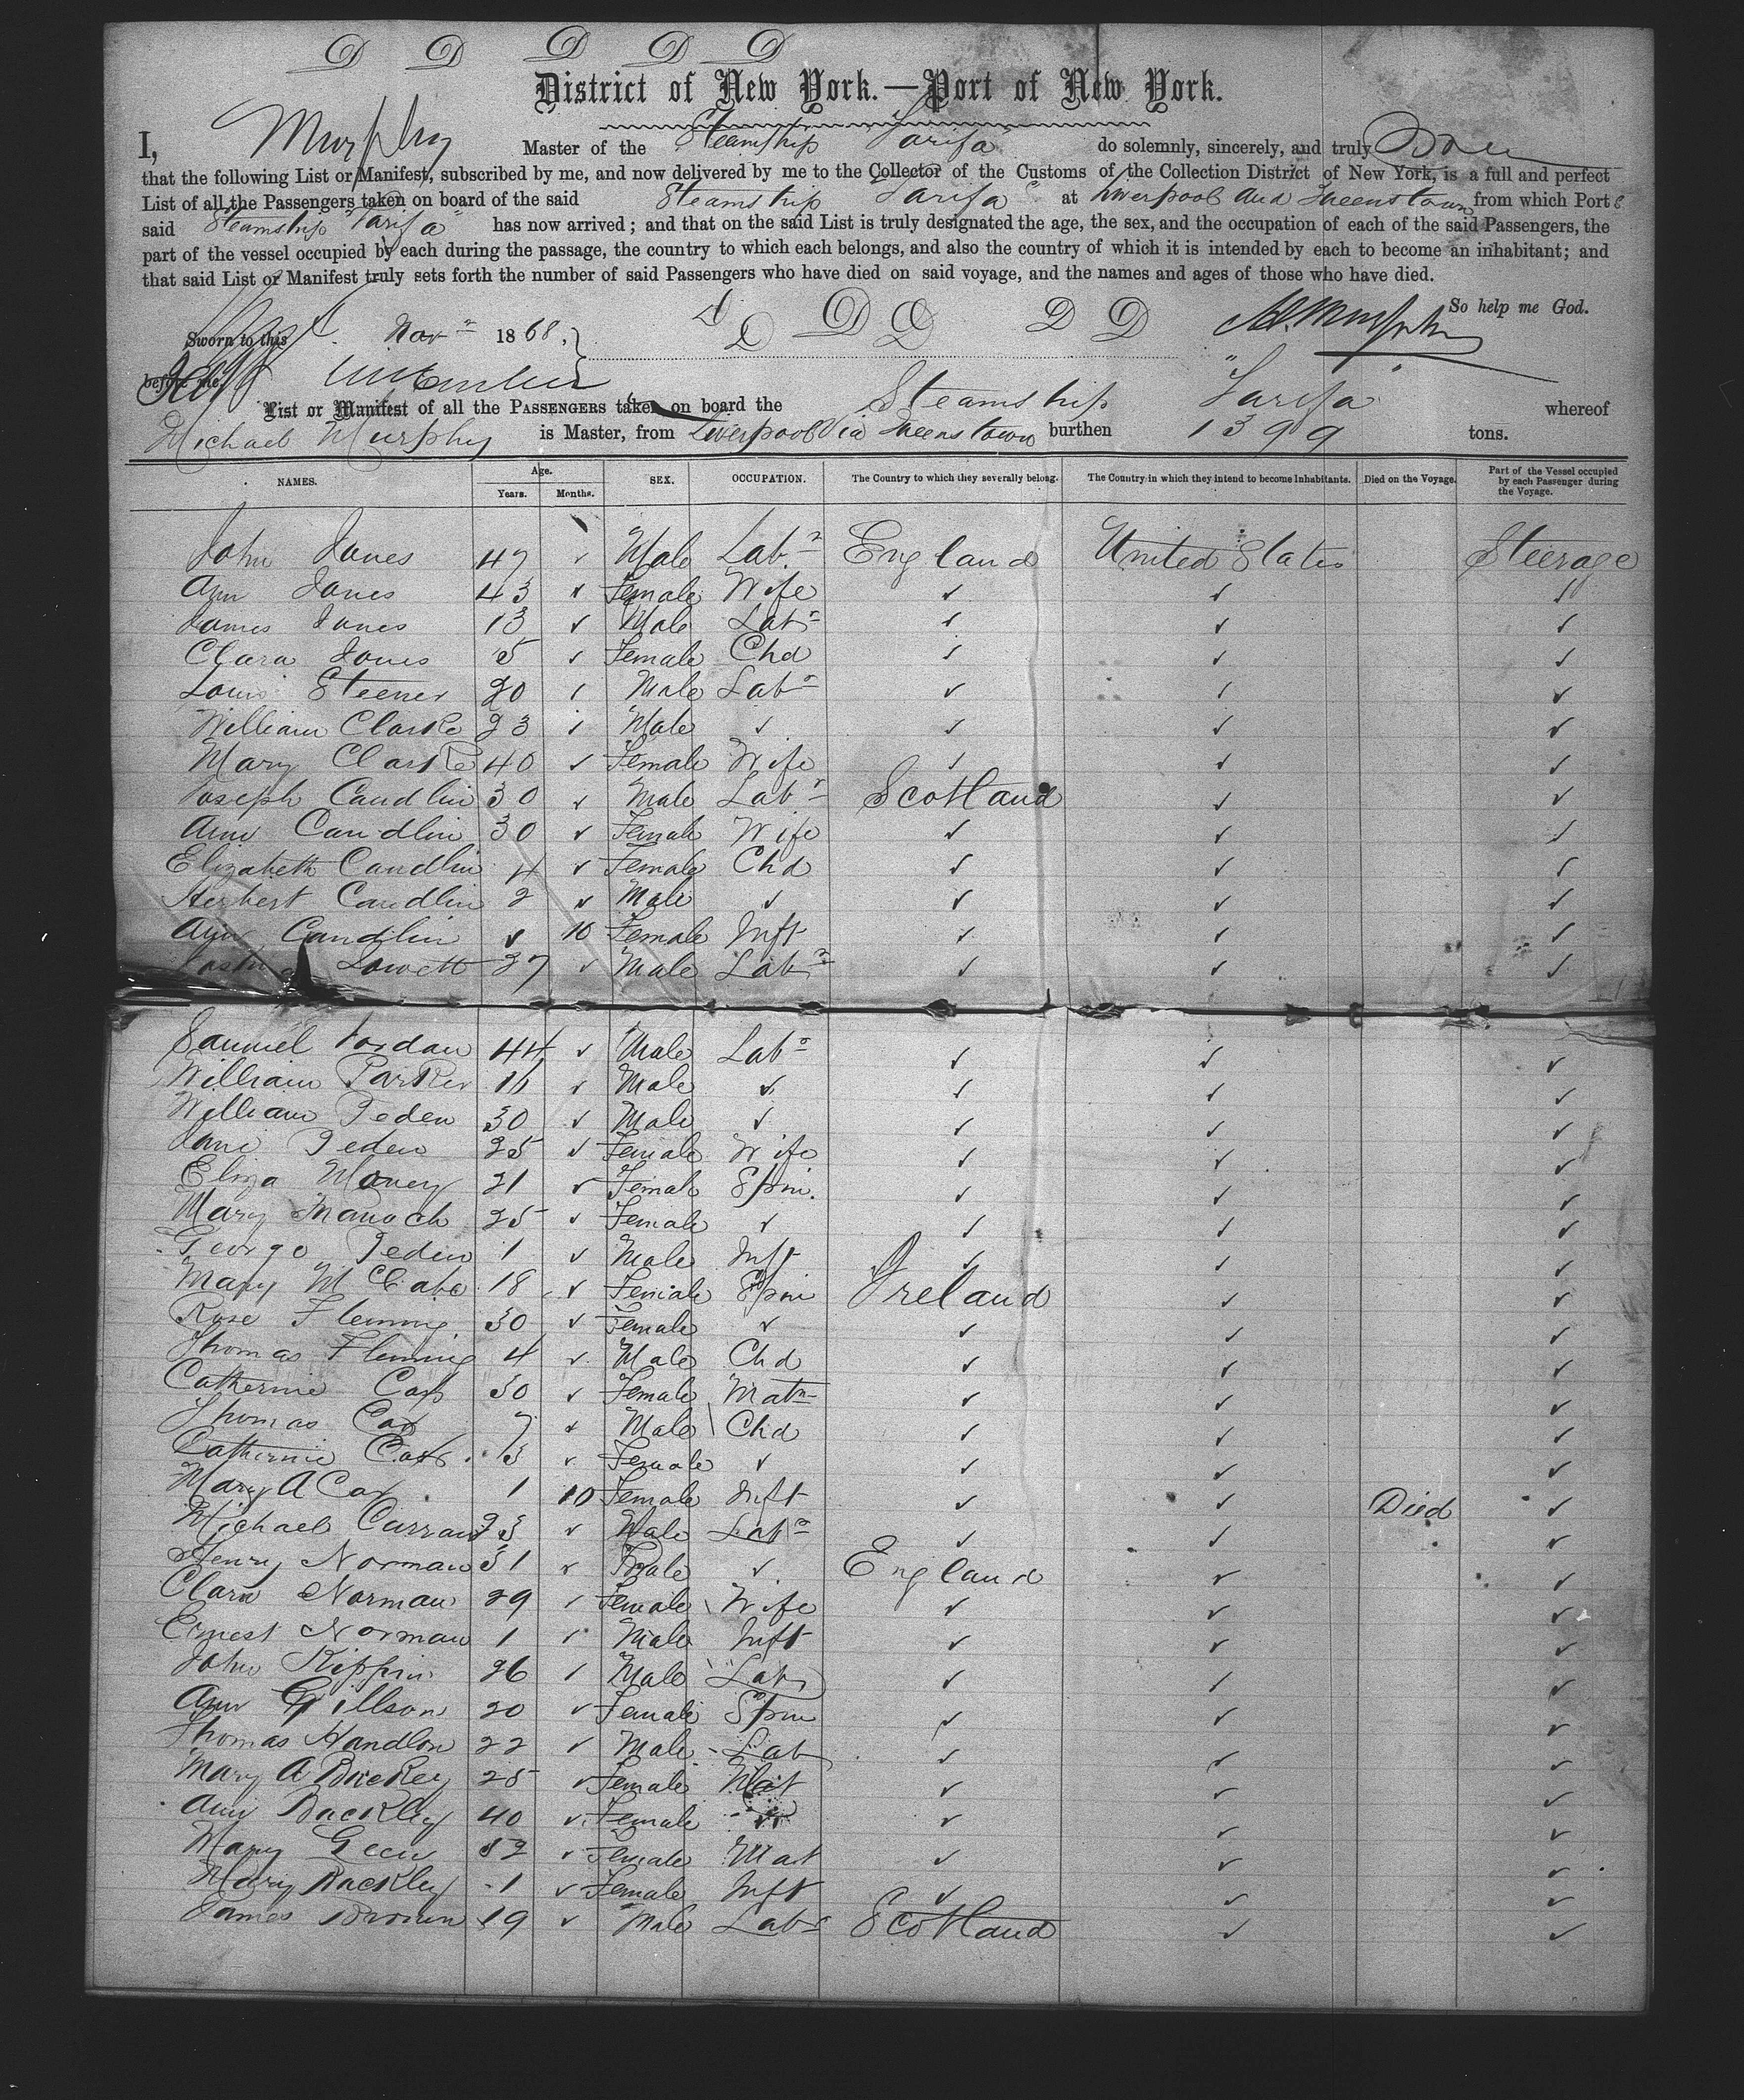 D D D D D
District of New York.—Port of New York.
I, Murphy Master of the Steamship Tarifa do solemnly, sincerely, and truly Swear
that the following List or Manifest, subscribed by me, and now delivered by me to the Collector of the Customs of the Collection District of New York, is a full and perfect
List of all the Passengers taken on board of the said Steamship Tarifa at Liverpool and Queenstown from which Port s
said Steamship "Tarifa" has now arrived; and that on the said List is truly designated the age, the sex, and the occupation of each of the said Passengers, the
part of the vessel occupied by each during the passage, the country to which each belongs, and also the country of which it is intended by each to become an inhabitant; and
that said List or Manifest truly sets forth the number of said Passengers who have died on said voyage, and the names and ages of those who have died.
So help me God.
D D D D D D
Sworn to this Novr 1868, M. Murphy
before me
List or Manifest of all the PASSENGERS taken on board the Steamship "Tarifa" whereof
Michael Murphy is Master, from Liverpool via Queenstown burthen 1399 tons.
NAMES. Age. Years. Months. SEX. OCCUPATION. The Country to which they severally belong. The Country in which they intend to become Inhabitants. Died on the Voyage. Part of the Vessel occupied by each Passenger during the Voyage.
John Jones 47 ✓ Male Labr England United States Steerage
Ann Jones 43 ✓ Female Wife ✓ ✓ ✓
James Jones 13 ✓ Male Labr ✓ ✓ ✓
Clara Jones 5 ✓ Female Chd ✓ ✓ ✓
Louis Steener 20 ✓ Male Labr ✓ ✓ ✓
William Clarke 23 ✓ Male ✓ ✓ ✓ ✓
Mary Clarke 40 ✓ Female Wife ✓ ✓ ✓
Joseph Caudlin 30 ✓ Male Labr Scotland ✓ ✓
Ann Caudlin 30 ✓ Female Wife ✓ ✓ ✓
Elizabeth Caudlin 4 ✓ Female Chd ✓ ✓ ✓
Herbert Caudlin 2 ✓ Male ✓ ✓ ✓ ✓
Ann Caudlin ✓ 10 Female Inft ✓ ✓ ✓
Lowett 27 ✓ Male Labr ✓ ✓ ✓
Samuel Jordan 44 ✓ Male Labr ✓ ✓ ✓
William Parker 16 ✓ Male ✓ ✓ ✓ ✓
William Peden 30 ✓ Male ✓ ✓ ✓ ✓
Jane Peden 25 ✓ Female Wife ✓ ✓ ✓
Eliza Money 21 ✓ Female Spin. ✓ ✓ ✓
Mary Manoch 25 ✓ Female ✓ ✓ ✓ ✓
George Peden 1 ✓ Male Inft ✓ ✓ ✓
Mary McCabe 18 ✓ Female Spin Ireland ✓ ✓
Rose Fleming 30 ✓ Female ✓ ✓ ✓ ✓
Thomas Fleming 4 ✓ Male Chd ✓ ✓ ✓
Catherine Cox 30 ✓ Female Matn ✓ ✓ ✓
Thomas Cox 7 ✓ Male Chd ✓ ✓ ✓
Catherine Cox 3 ✓ Female ✓ ✓ ✓ ✓
Mary A Cox 1 10 Female Inft ✓ ✓ Died ✓
Michael Curran 23 ✓ Male Labr ✓ ✓ ✓
Henry Norman 31 ✓ Male ✓ England ✓ ✓
Clara Norman 29 ✓ Female Wife ✓ ✓ ✓
Ernest Norman 1 ✓ Male Inft ✓ ✓ ✓
John Kippin 26 ✓ Male Labr ✓ ✓ ✓
Ann Gillson 20 ✓ Female Spin ✓ ✓ ✓
Thomas Handlon 22 ✓ Male Lab ✓ ✓ ✓
Mary A 25 ✓ Female Mat ✓ ✓ ✓
Ann Backley 40 ✓ Female ✓ ✓ ✓ ✓
Mary 52 ✓ Female Mat ✓ ✓ ✓
Mary Backley 1 ✓ Female Inft ✓ ✓ ✓
James Brown 19 ✓ Male Labr Scotland ✓ ✓